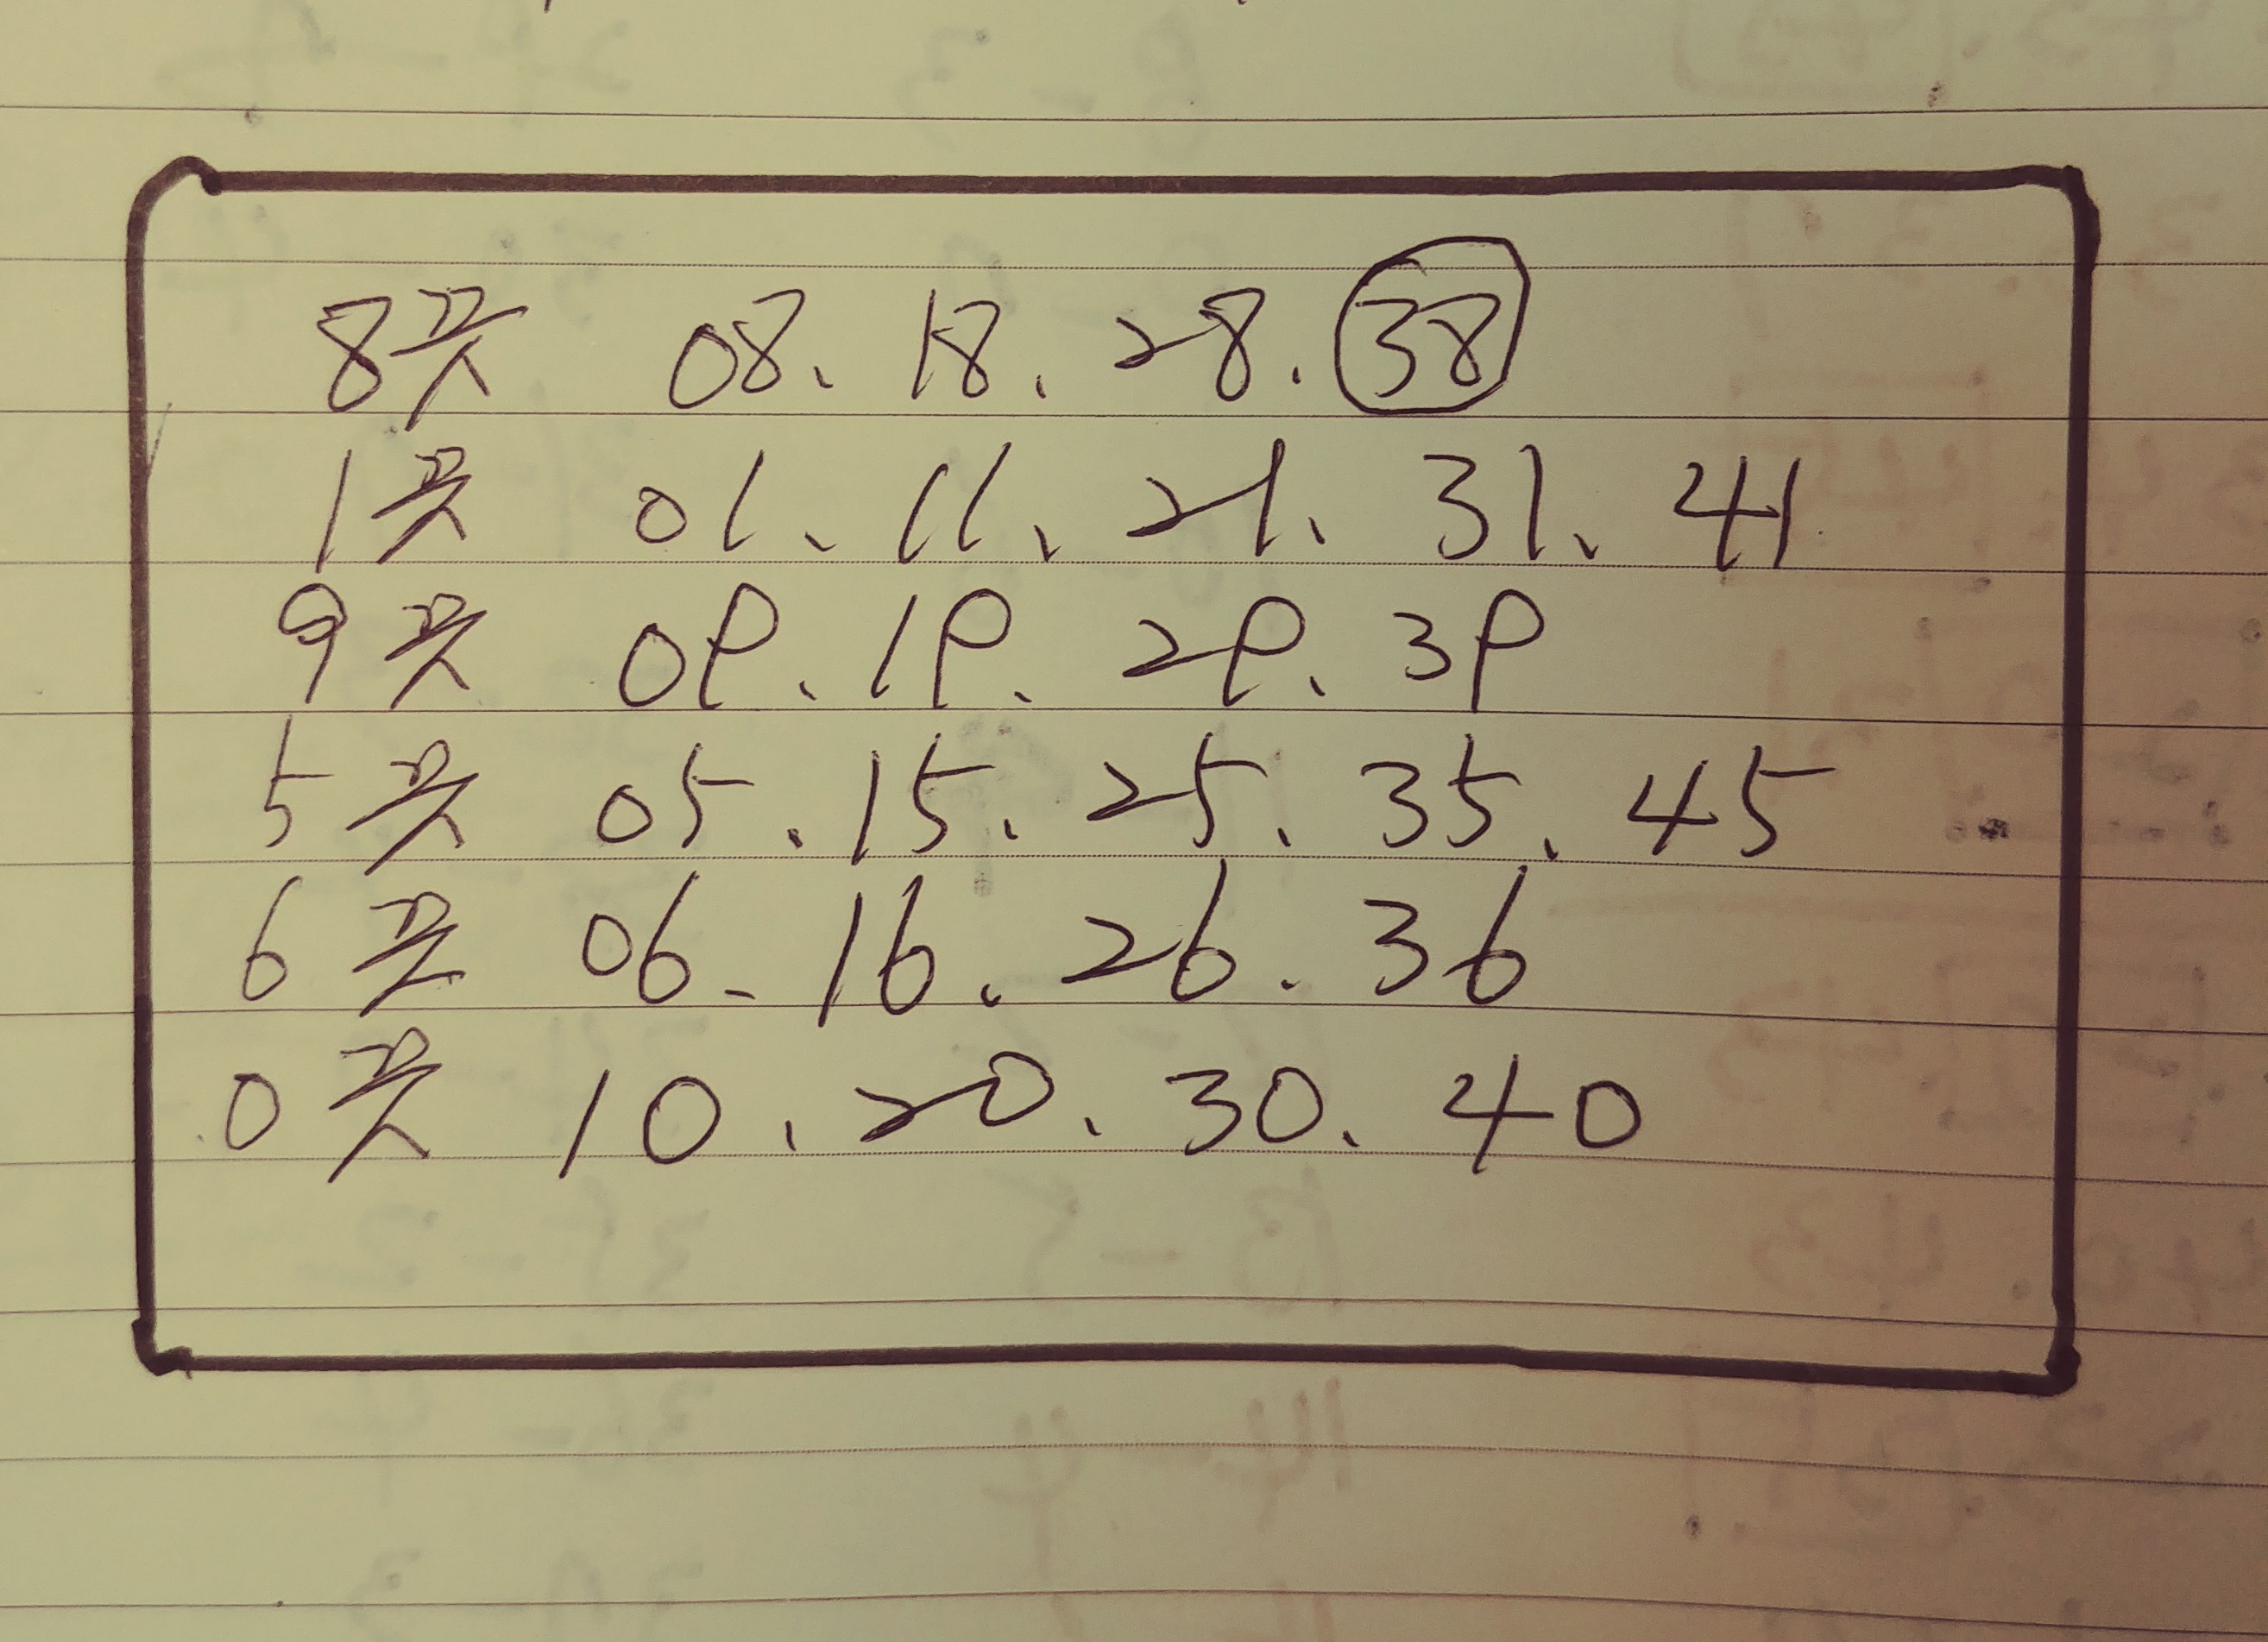 8끗 08. 18. 28. 38
1끗 01. 11. 21. 31. 41
9끗 09. 19. 29. 39
5끗 05. 15. 25. 35. 45
6끗 06. 16. 26. 36
0끗 10. 20. 30. 40